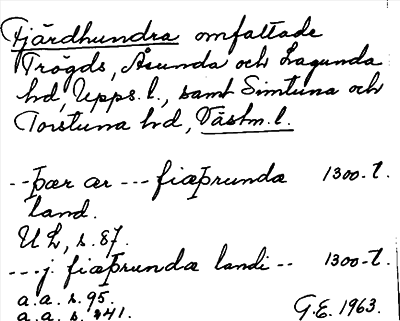 Fjärdhundra omfattade
Trögds, Åsunda och Lagunda
hd, Upps. l., samt Simtuna och
Torstuna hd, Västm. l.
--þær ær --- fiæþrundæ 1300-t.
land.
UL, s. 87.
---j fiæþrundæ landi -- 1300-t.
a.a. s. 95.
a.a. s. 241. G.E. 1963.